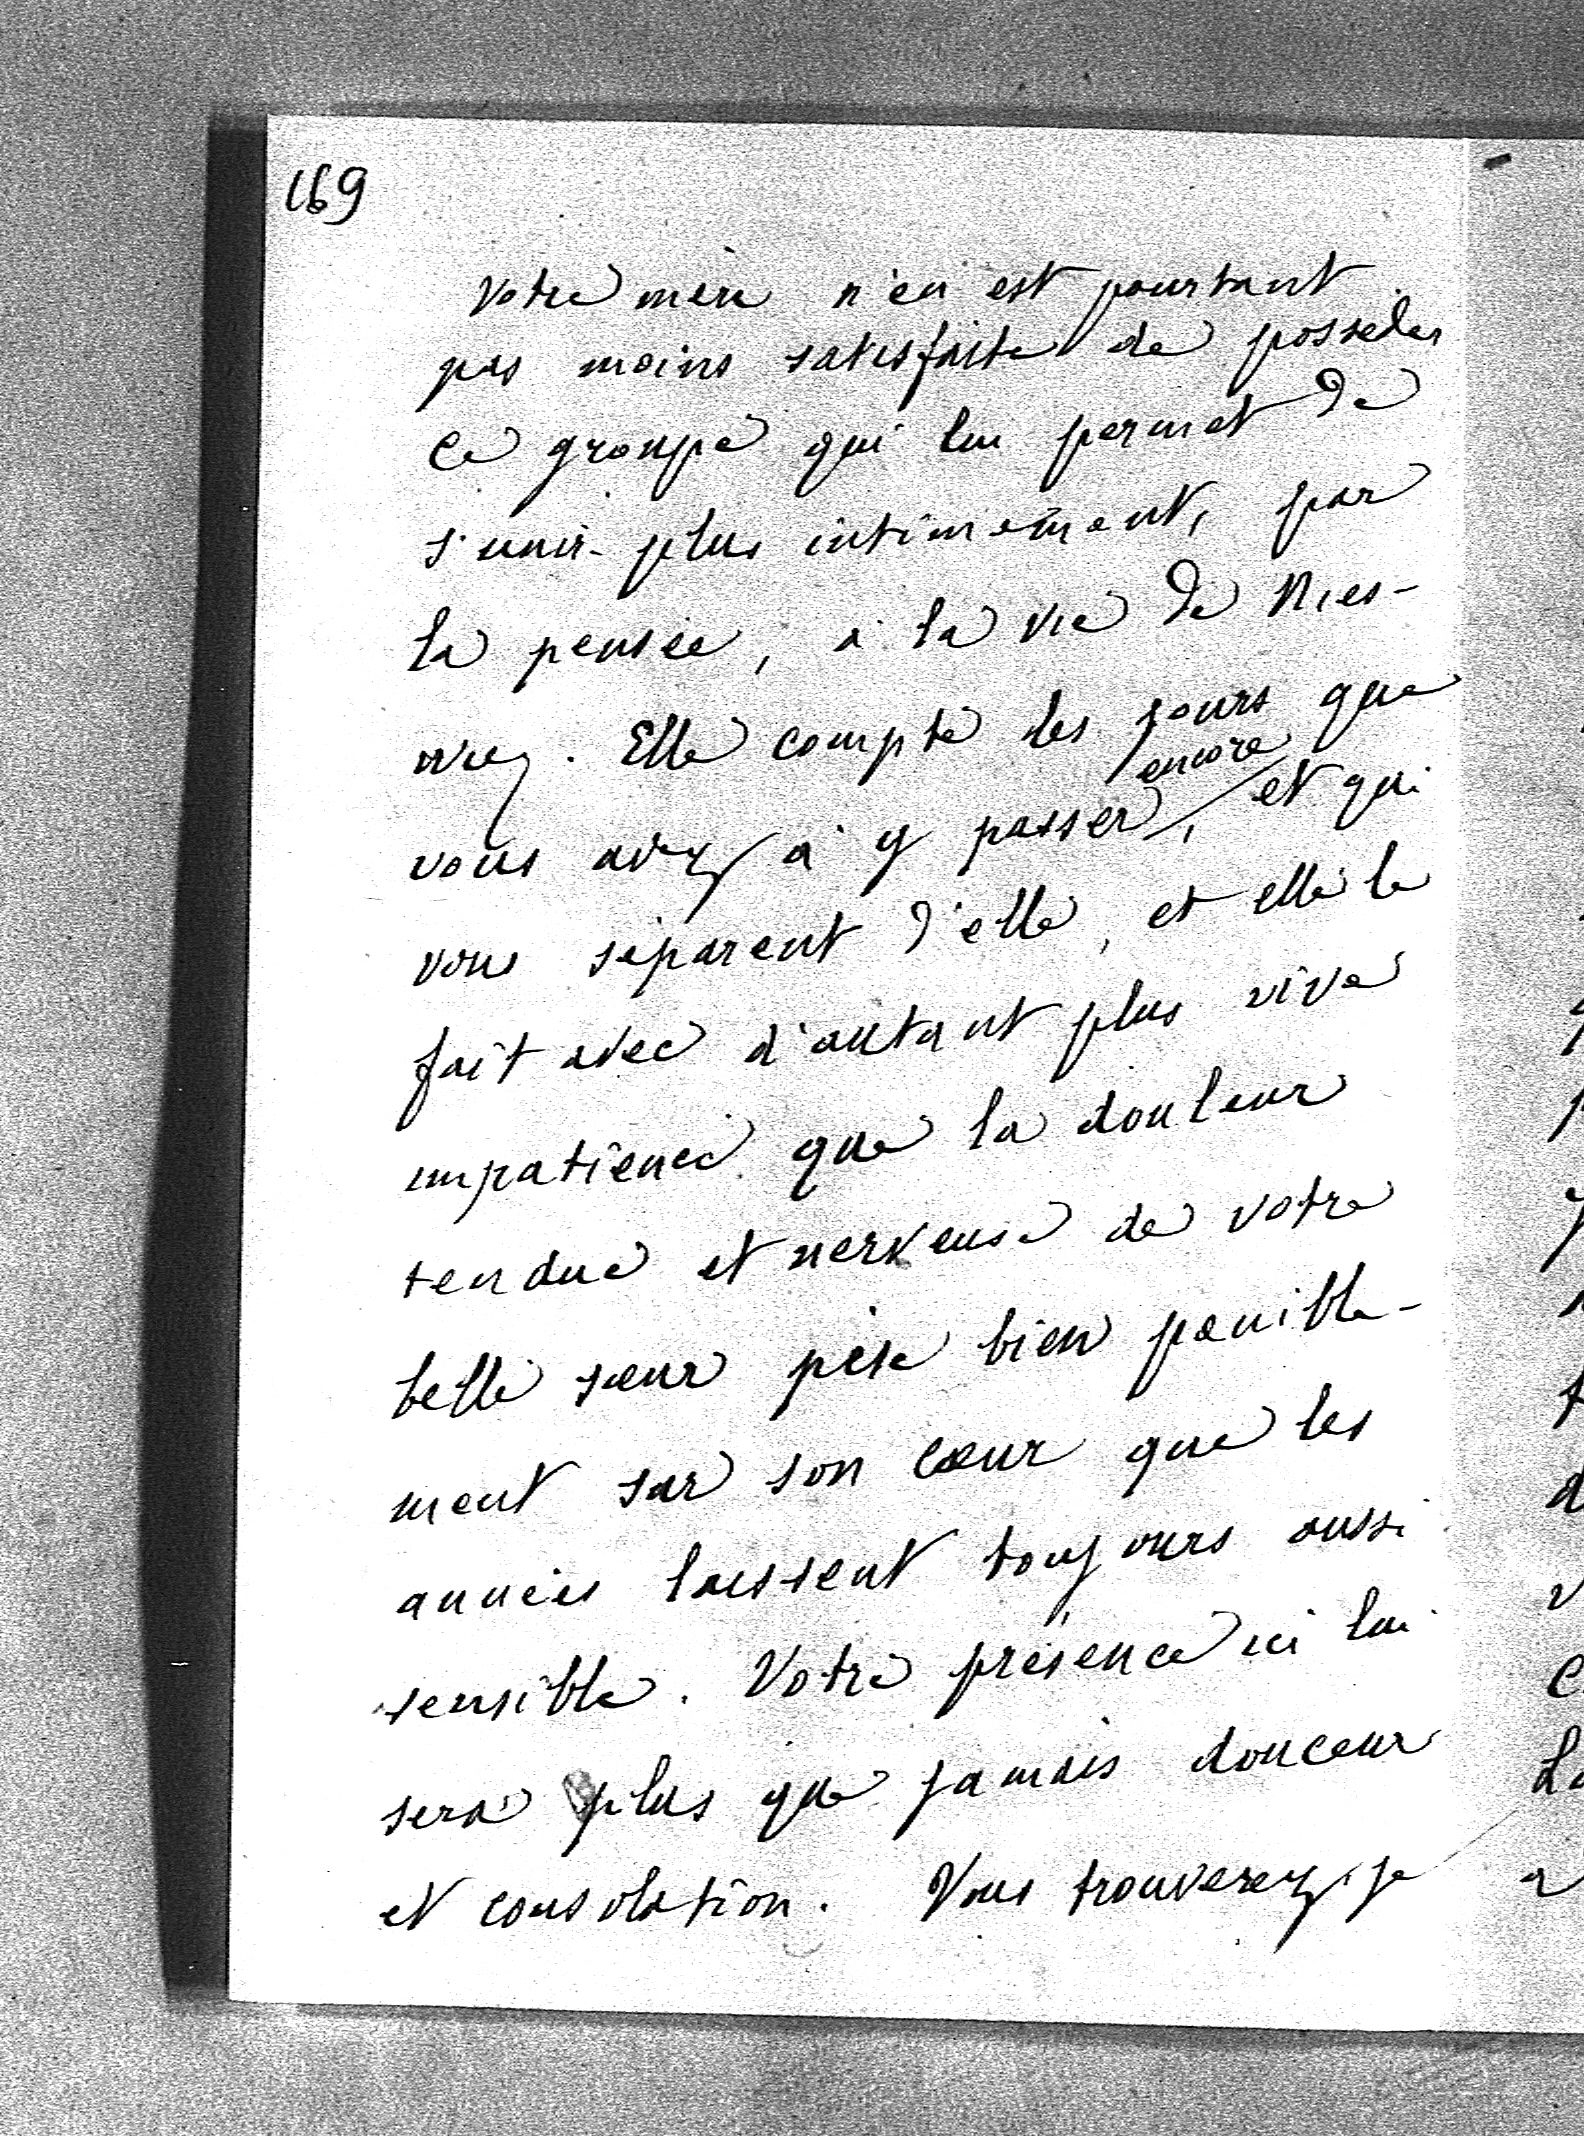 169
votre mère n'en est pourtant
pas moins satisfaite de posséder
ce groupe qui lui permet de
s'unir plus intimement, par
la pensée, à la vie de Nies-
wiez. Elle compte les jours que
encore
vous avez à y passer, et qui
vous séparent d'elle, et elle le
fait avec d'autant plus vive
impatience que la douleur
tendue et nerveuse de votre
belle sœur pèse bien pénible-
ment sur son cœur que les
années laissent toujours aussi
sensible. Votre présence ici lui
sera plus que jamais douceur
et consolation. Vous trouverez, je